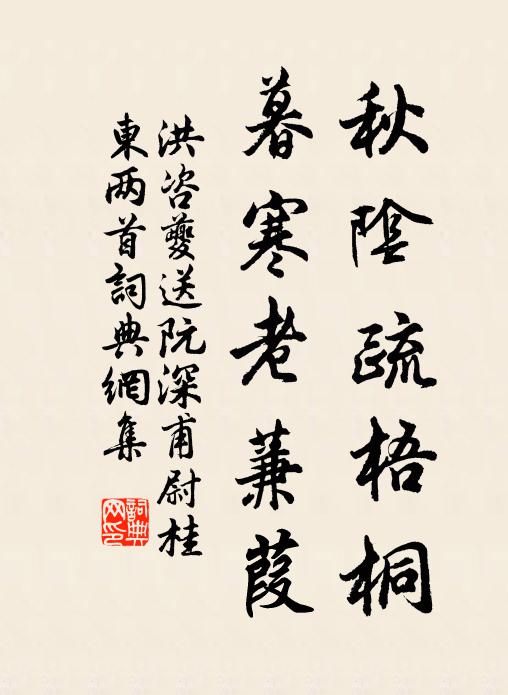 秋陰疏梧桐
暮寒老蒹葭
洪咨夔送阮深甫尉桂
東两首詞典網集
詞典网印